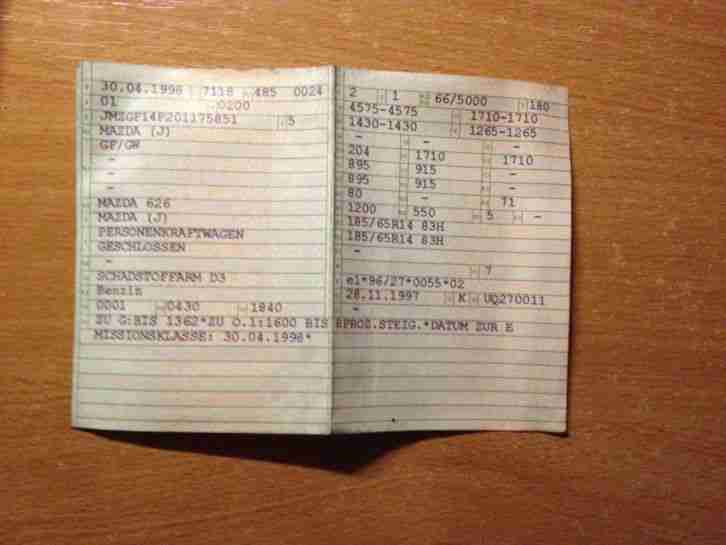 30.04.1998 7118 485 0024
01 0200
JMZGF14P201175851 5
MAZDA (J)
GF/GW
-
-
-
MAZDA 626
MAZDA (J)
PERSONENKRAFTWAGEN
GESCHLOSSEN
-
SCHADSTOFFARM D3
Benzin
0001 0430 1840
2 1 66/5000 180
4575-4575 1710-1710
1430-1430 1265-1265
- - -
204 1710 1710
895 915 -
895 915 -
80 - 71
1200 550 5 -
185/65R14 83H
185/65R14 83H
-
7
e1*96/27*0055*02
28.11.1997 K UQ270011
-
ZU G:BIS 1362*ZU O.1:1600 BIS 8PROZ.STEIG.*DATUM ZUR E
MISSIONSKLASSE: 30.04.1998*